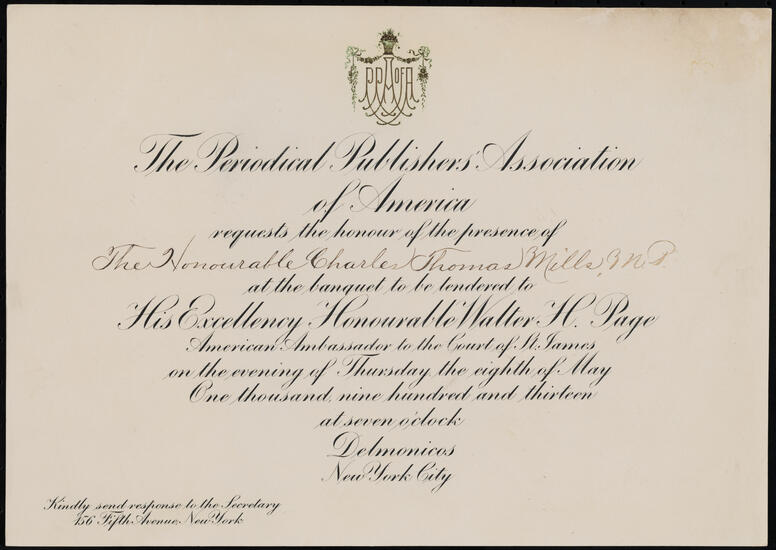 PPAOFA
The Periodical Publishers' Association
of America
requests the honour of the presence of
The Honourable Charles Thomas Mills, M.P.
at the banquet to be tendered to
His Excellency Honourable Walter H. Page
American Ambassador to the Court of St. James
on the evening of Thursday, the eighth of May
One thousand, nine hundred and thirteen
at seven o'clock
Delmonicos
New York City
Kindly send response to the Secretary
456 Fifth Avenue, New York